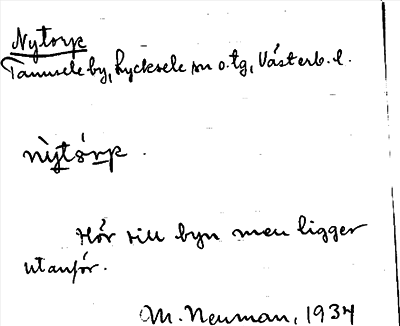 Nytorp
Tannsele by, Lycksele sn o. tg, Västerb. l.
nỳtórp.
Hör till byn men ligger
utanför.
M. Neuman, 1934